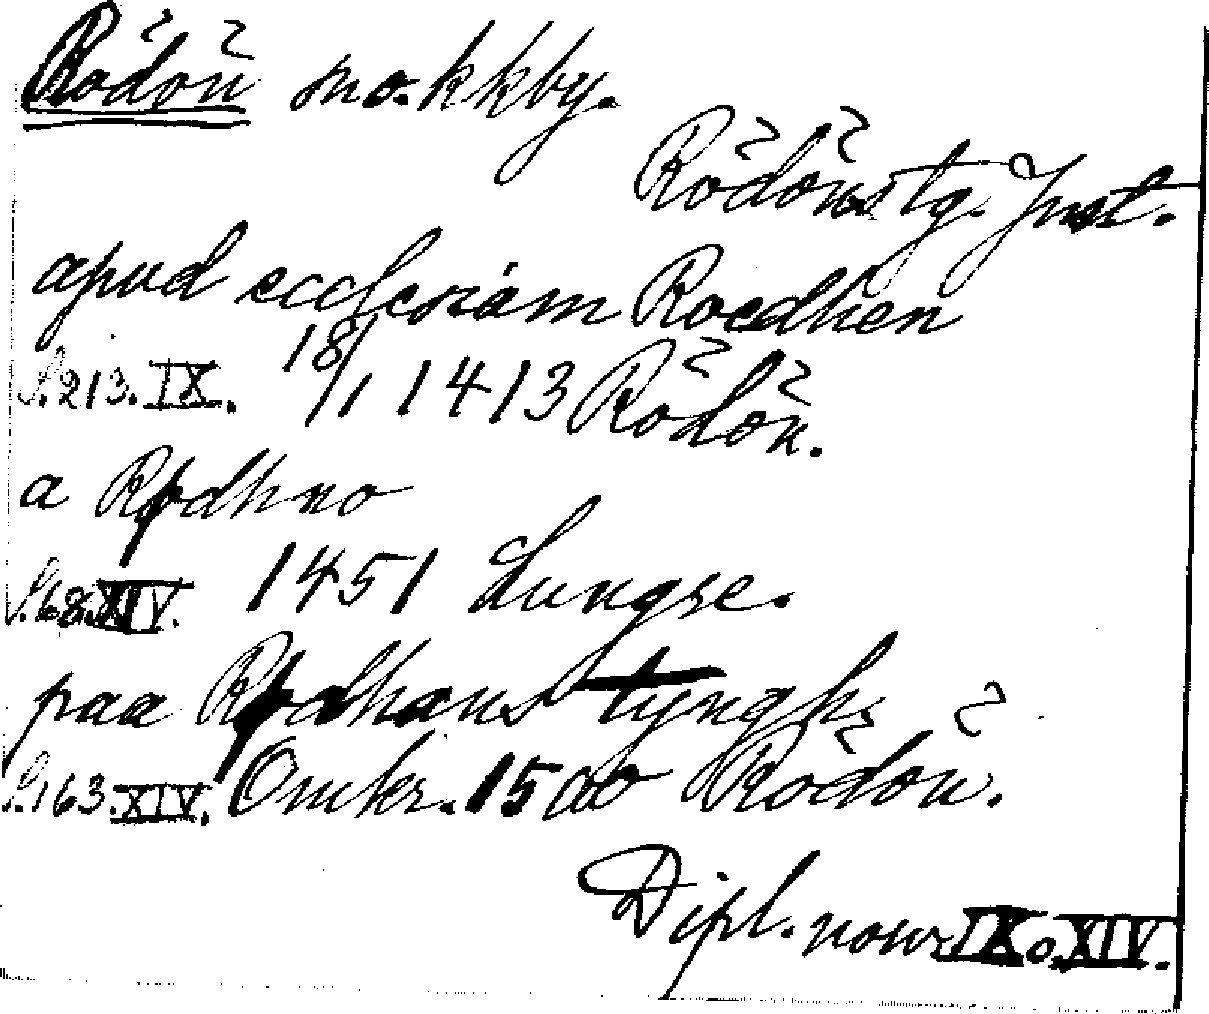 Rödön sno. k kby.
Rödöns tg. Jmtl.
apud ecclesiam Roedhen
S. 213. IX. 18/1 1413 Rödön.
a Rødhno
S. 68. XIV. 1451 Lungre.
paa Rødhøns tyngh
S. 163. XIV. Omkr. 1500 Rödön.
Dipl. norv. IX o. XIV.